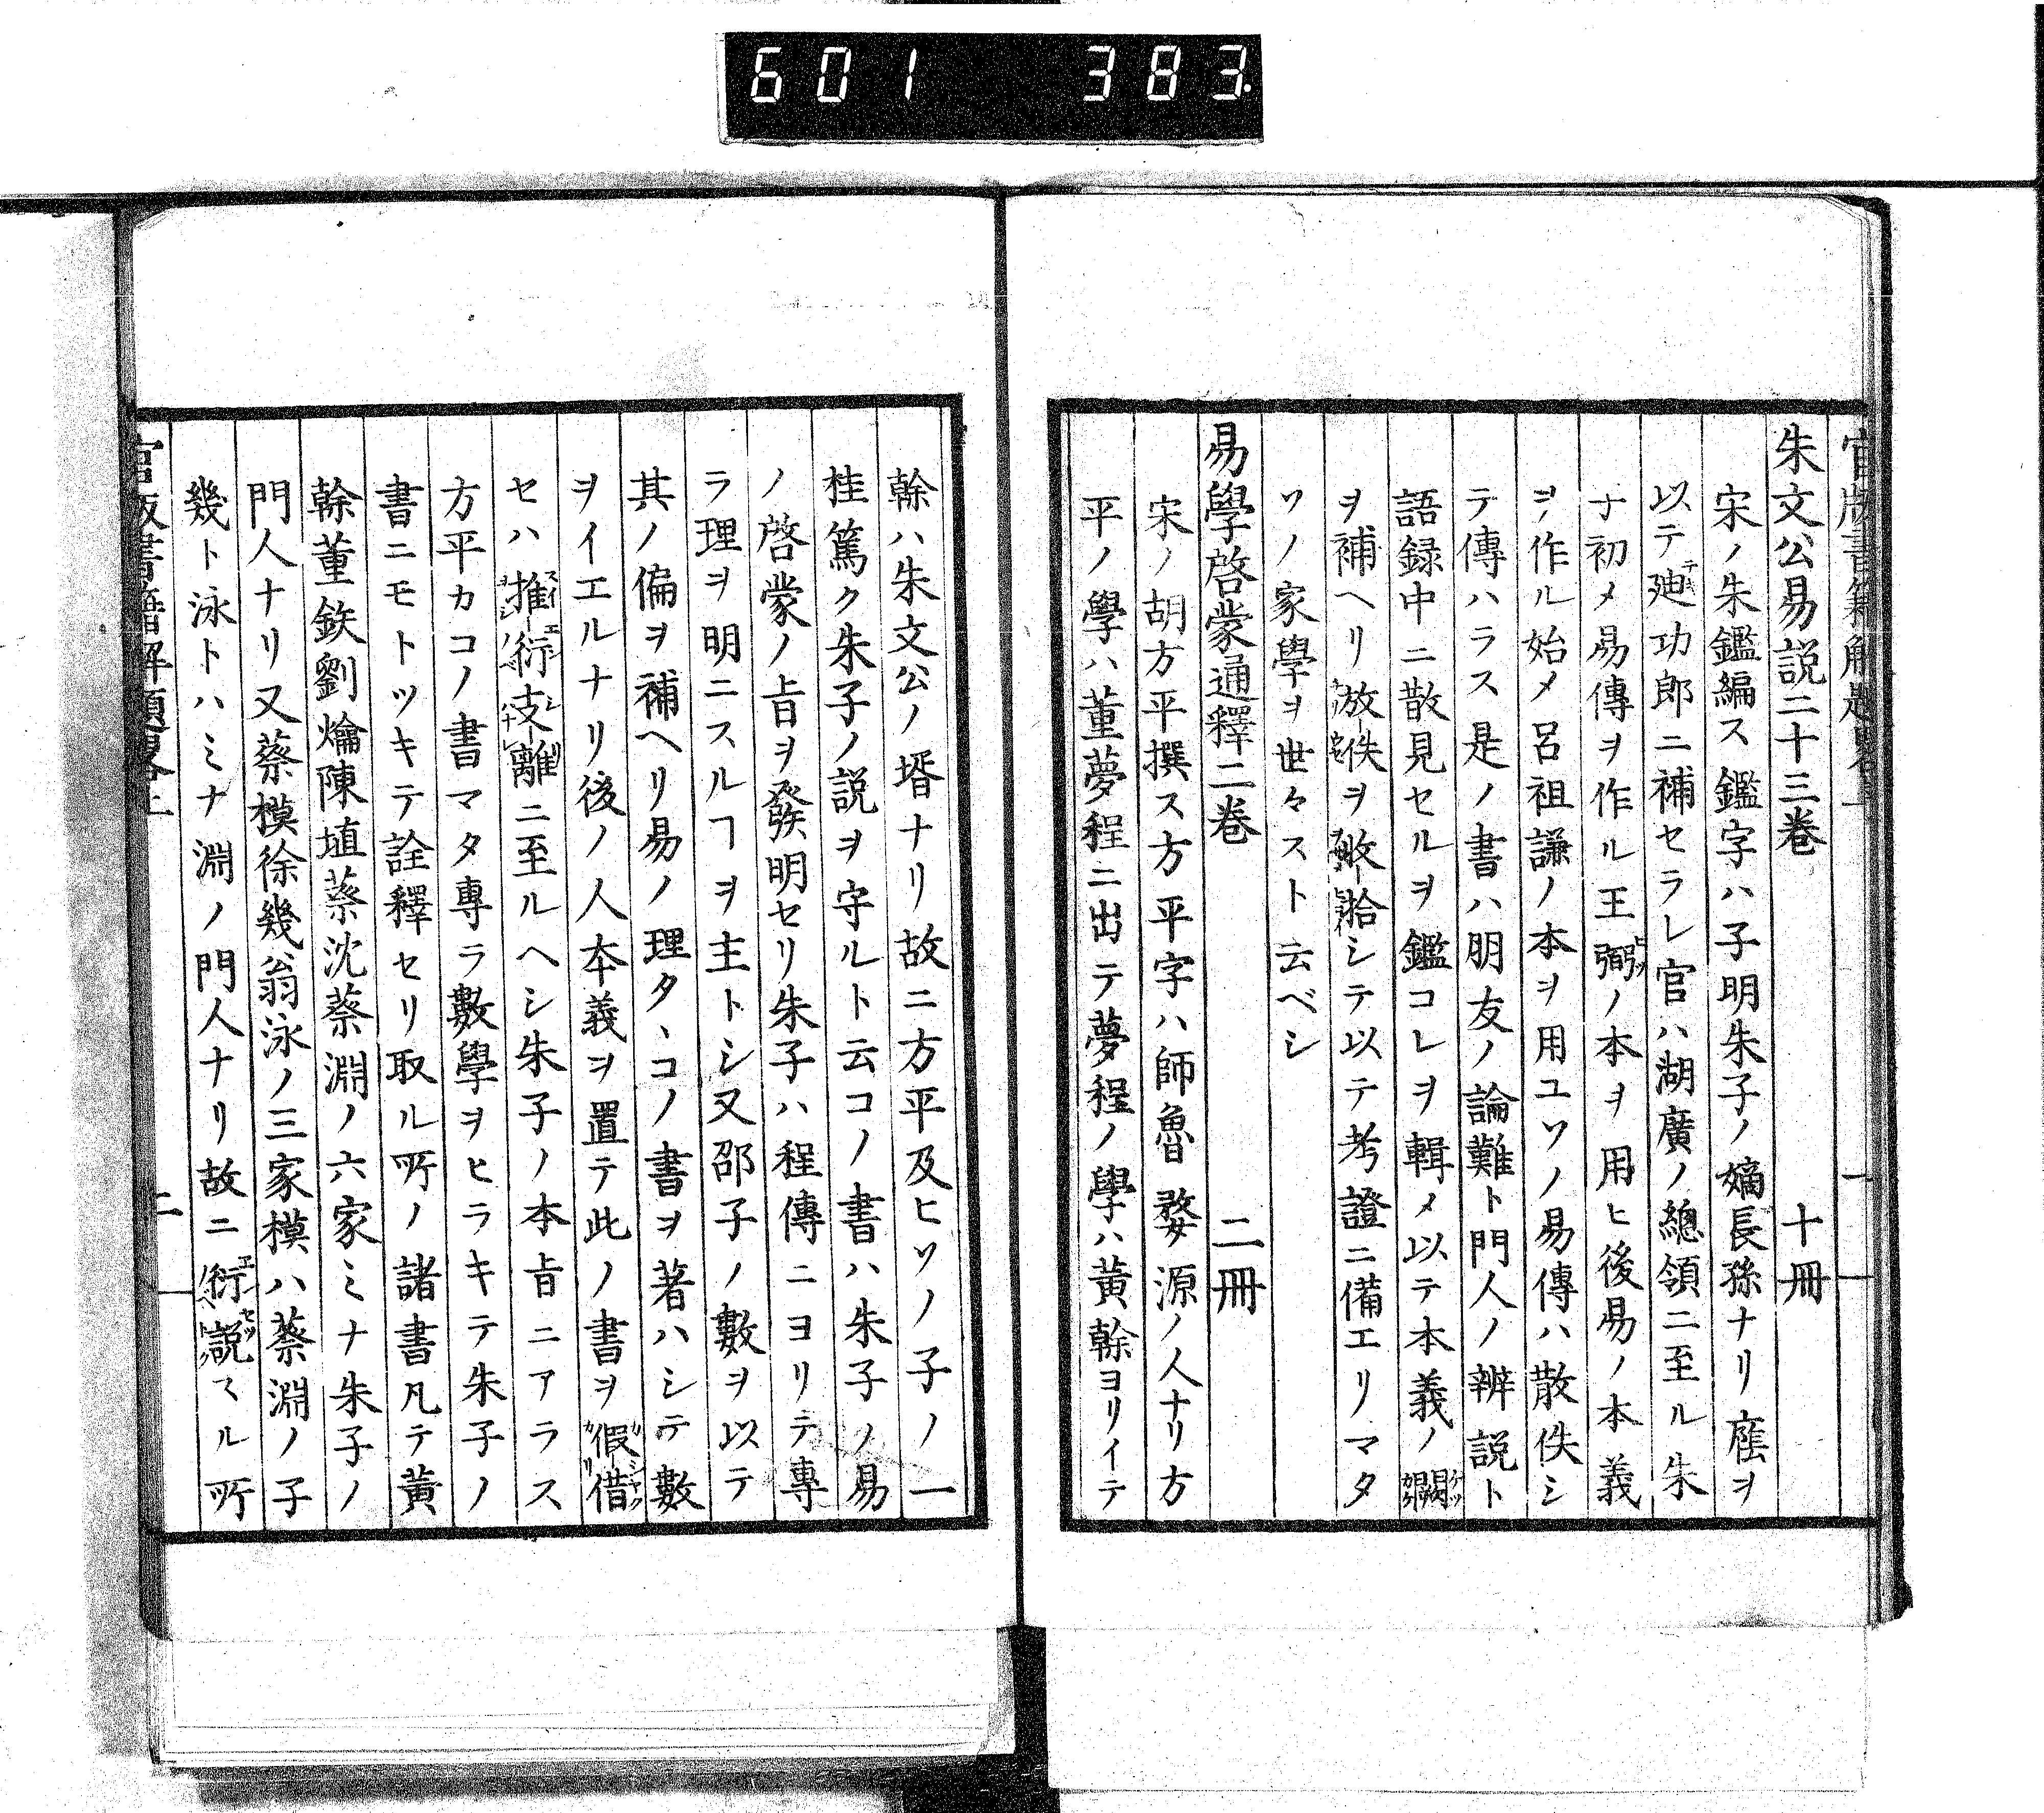 601 383.
朱文公易説二十三巻 十冊
宋ノ朱鑑編ス鑑字ハ子明朱子ノ嫡長孫ナリ廕ヲ
以テ廸功郎ニ補セラレ官ハ湖廣ノ總領ニ至ル朱
子初メ易傳ヲ作ル王弼ノ本ヲ用ヒ後易ノ本義
ヲ作ル始メ呂祖謙ノ本ヲ用ユソノ易傳ハ散佚シ
テ傳ハラス是ノ書ハ朋友ノ論難ト門人ノ辨説ト
語録中ニ散見セルヲ鑑コレヲ輯メ以テ本義ノ闕
ヲ補ヘリ放佚ヲ收拾シテ以テ考證ニ備エリマタ
ソノ家學ヲ世々スト云ベシ
易學啓蒙通釋二巻 二冊
宋ノ胡方平撰ス方平字ハ師魯婺源ノ人ナリ方
平ノ學ハ董夢程ニ出テ夢程ノ學ハ黄榦ヨリイテ
榦ハ朱文公ノ壻ナリ故ニ方平及ヒソノ子ノ一
桂篤ク朱子ノ説ヲ守ルト云コノ書ハ朱子ノ易
ノ啓蒙ノ旨ヲ發明セリ朱子ハ程傳ニヨリテ專
ラ理ヲ明ニスルヿヲ主トシ又邵子ノ數ヲ以テ
其ノ偏ヲ補ヘリ易ノ理タヽコノ書ヲ著ハシテ數
ヲイエルナリ後ノ人本義ヲ置テ此ノ書ヲ假借
セハ推衍支離ニ至ルヘシ朱子ノ本旨ニアラス
方平カコノ書マタ專ラ數學ヲヒラキテ朱子ノ
書ニモトツキテ詮釋セリ取ル所ノ諸書凡テ黄
榦董銖劉爚陳埴蔡沈蔡淵ノ六家ミナ朱子ノ
門人ナリ又蔡模徐幾翁泳ノ三家模ハ蔡淵ノ子
幾ト泳トハミナ淵ノ門人ナリ故ニ衍説スル所
官版書籍解題畧上 二